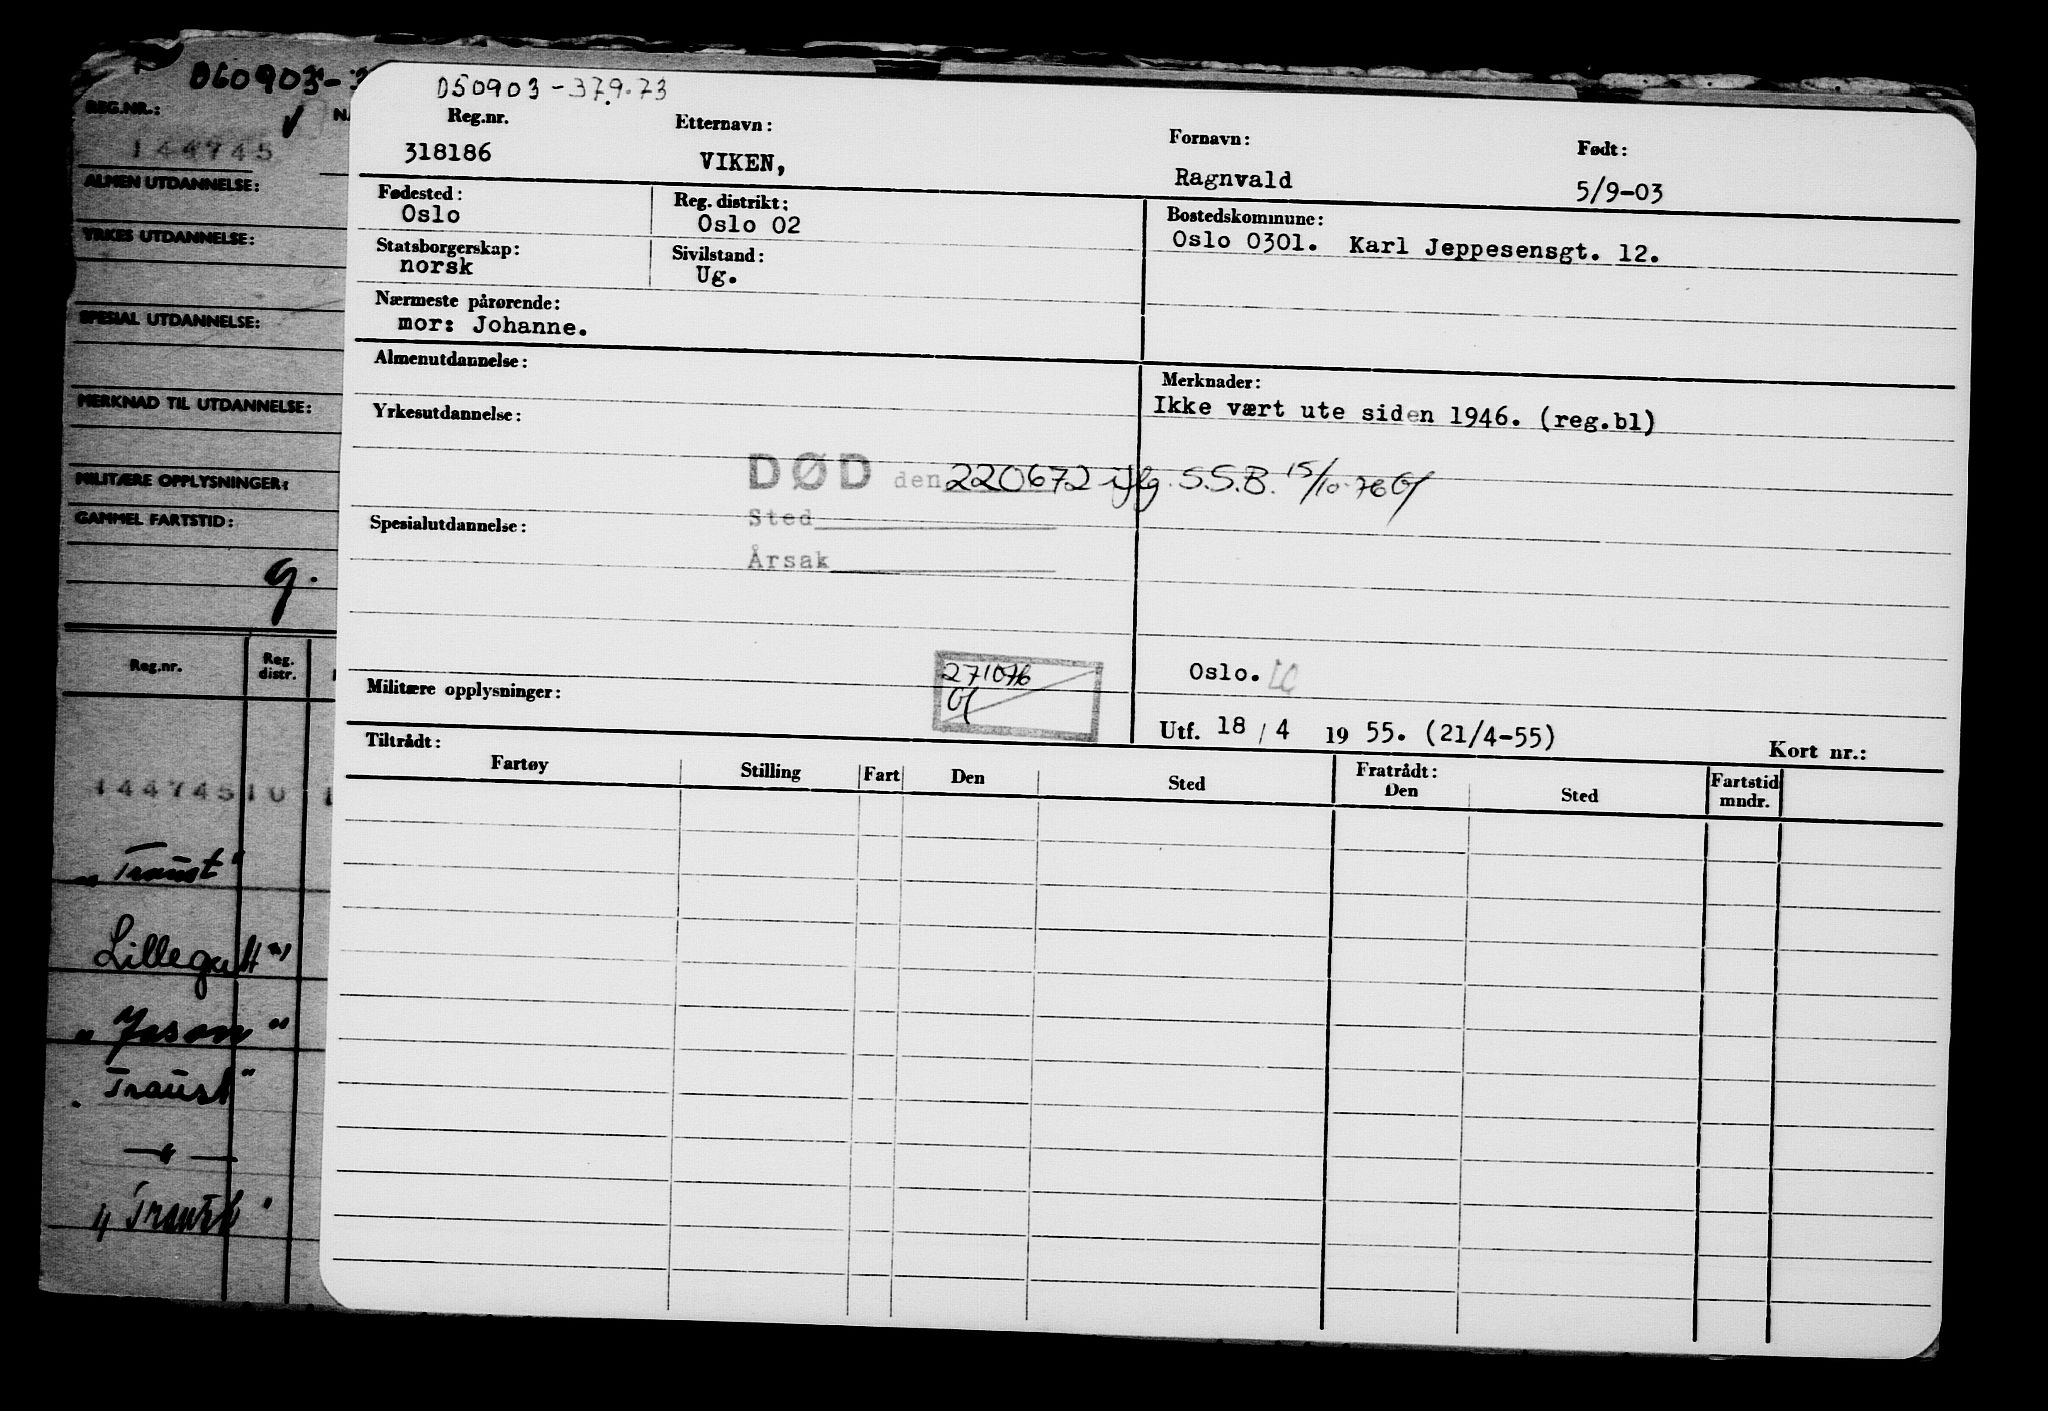 060903-3
REG.NR.:
144745
ALMEN UTDANNELSE:
YRKES UTDANNELSE:
SPESIAL UTDANNELSE:
MERKNAD TIL UTDANNELSE:
MILITÆRE OPPLYSNINGER:
GAMMEL FARTSTID:
g.
Reg.nr.
Reg. distr.
144745 10
„Traust"
Lillegutt"
"Jason"
Traust"
—"—
"Traust"
050903-379.73
Reg.nr. Etternavn: Fornavn: Født:
318186 VIKEN, Ragnvald 5/9-03
Fødested: Reg. distrikt: Bostedskommune:
Oslo Oslo 02 Oslo 0301. Karl Jeppesensgt. 12.
Statsborgerskap: Sivilstand:
norsk Ug.
Nærmeste pårørende:
mor: Johanne.
Almenutdannelse: Merknader:
Ikke vært ute siden 1946. (reg.bl)
Yrkesutdannelse:
DØD den 220672 iflg. S.S.B. 15/10-76
Sted
Spesialutdannelse:
Årsak
271076
Oslo.
Militære opplysninger:
Utf. 18 / 4 1955. (21/4-55) Kort nr.:
Tiltrådt: Fratrådt:
Fartøy Stilling Fart Den Sted Den Sted Fartstid mndr.